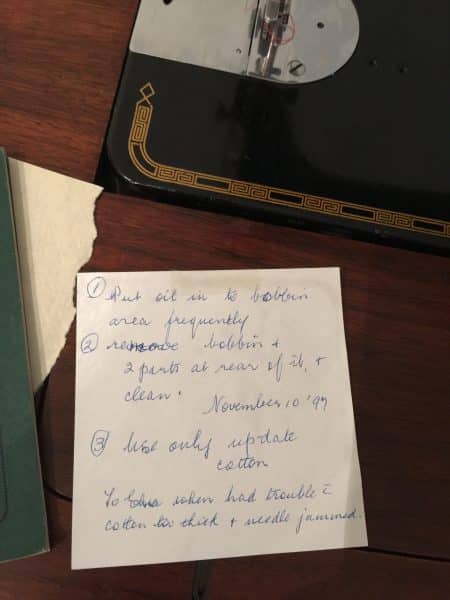 ① Put oil in to bobbin
area frequently
② remove bobbin +
2 parts at rear of it, +
clean.
November 10 '97
③ Use only update
cotton
To when had trouble c̄
cotton too thick + needle jammed.